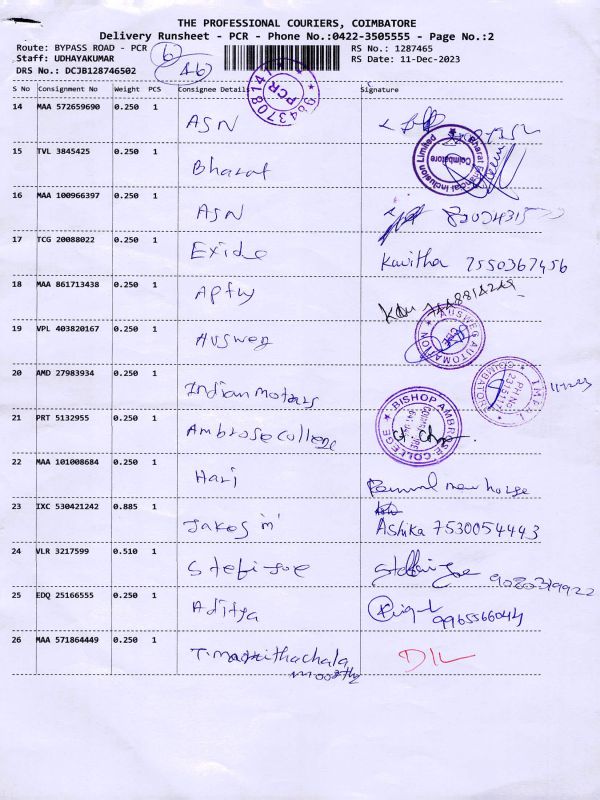 THE PROFESSIONAL COURIERS, COIMBATORE
Delivery Runsheet - PCR - Phone No.:0422-3505555 - Page No.:2
Route: BYPASS ROAD - PCR
RS No.: 1287465
Staff: UDHAYAKUMAR
RS Date: 11-Dec-2023
DRS No.: DCJB128746502
S No Consignment No Weight PCS Consignee Details Signature
14 MAA 572659690 0.250 1 ASN
15 TVL 3845425 0.250 1 Bharat
Bharat Financial Inclusion Limited Coimbatore
16 MAA 100966397 0.250 1 ASN
17 TCG 20088022 0.250 1 Exide Kavitha 7550367456
18 MAA 861713438 0.250 1
19 VPL 403820167 0.250 1 Ausweg
AUSWEG AUTOMATION
20 AMD 27983934 0.250 1 Indian motors
21 PRT 5132955 0.250 1 Ambrose college
BISHOP AMBROSE COLLEGE
22 MAA 101008684 0.250 1 Hari new horse
23 IXC 530421242 0.885 1 Ashika 7530054443
24 VLR 3217599 0.510 1 Stefi Joe
25 EDQ 25166555 0.250 1 Aditya
26 MAA 571864449 0.250 1 D/L